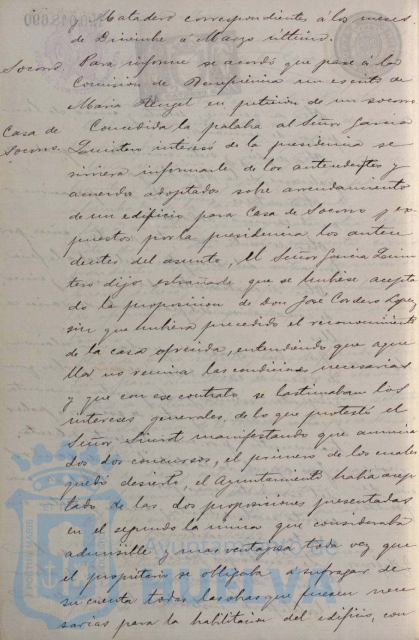 Matadero correspondientes á los meses
de Diciembre á Marzo último.
Socorro. Para informe se acordó que pase á la
Comision de Beneficencia un escrito de
Maria Angel en peticion de un socorro
Casa de Socorro. Concedida la palabra al Señor Garcia
Quintero interesó de la presidencia se
sirviera informarle de los antecedentes y
acuerdos adoptados sobre arrendamiento
de un edificio para Casa de Socorro y ex-
puestos por la presidencia los antece-
dentes del asunto, el Señor Garcia Quin-
tero dijo estrañarle que se hubiese acepta-
do la proposicion de Don José Cordero Lopez
sin que hubiera precedido el reconocimiento
de la casa ofrecida, entendiendo que aque-
lla no reunia las condiciones necesarias
y que con ese contrato se lastimaban los
intereses generales, de lo que protestó el
Señor manifestando que anuncia-
dos dos concursos, el primero de los cuales
quedó desierto, el Ayuntamiento habia acep-
tado de las dos proposiciones presentadas
en el segundo la unica que consideraba
admisible y mas ventajosa toda vez que
el propietario se obligaba á sufragar de
su cuenta todas las obras que fuesen nece-
sarias para la habilitacion del edificio, con
Ayuntamiento de
HUELVA